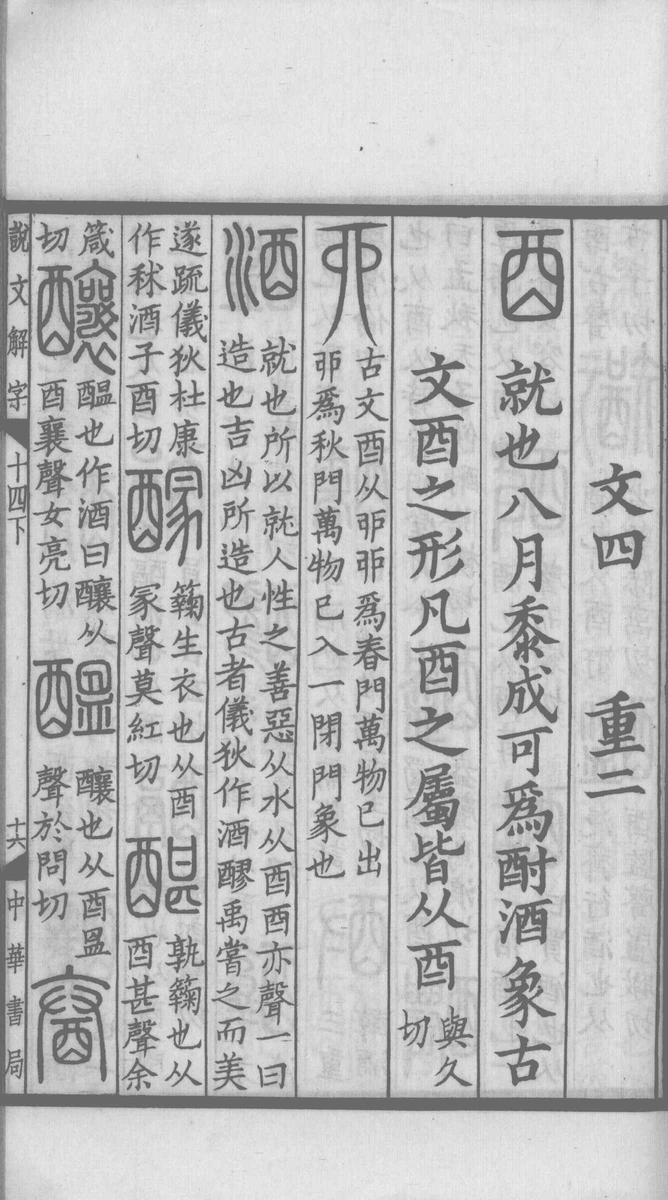 文四 重二
酉 就也八月黍成可爲酎酒象古
文酉之形凡酉之屬皆从酉 與久切
丣 古文酉从丣丣爲春門萬物已出
丣爲秋門萬物已入一閉門象也
酒 就也所以就人性之善惡从水从酉酉亦聲一曰
造也吉凶所造也古者儀狄作酒醪禹嘗之而美
遂疏儀狄杜康
作秫酒子酉切
醵生衣也从酉
冡聲莫紅切
醓 孰籟也从
酉甚聲余
箴切
釀 醞也作酒曰釀从
酉襄聲女亮切
醞 釀也从酉𥁕
聲於問切
說文解字 十四下
十六 中華書局